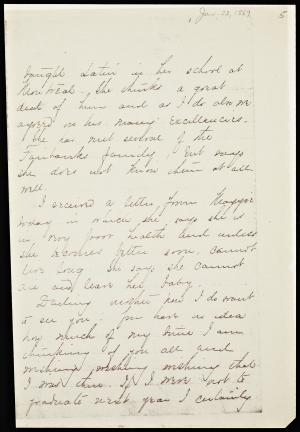 Jan. 22, 1869
5
taught Latin in her school at
Montreal. She thinks a great
deal of him and as I do also we
agreed on his many excellencies.
She has met several of the
Fairbanks family, but says
she does not know them at all
well.
I received a letter from Maggie
today in which she says she is
in very poor health and unless
she becomes better soon, cannot
live long. She says she cannot
die and leave her baby.
Darling mother how I do want
to see you. You have no idea
how much of my time I am
thinking of you all and
wishing, wishing, wishing that
I was there. If I were not to
graduate next year I certainly